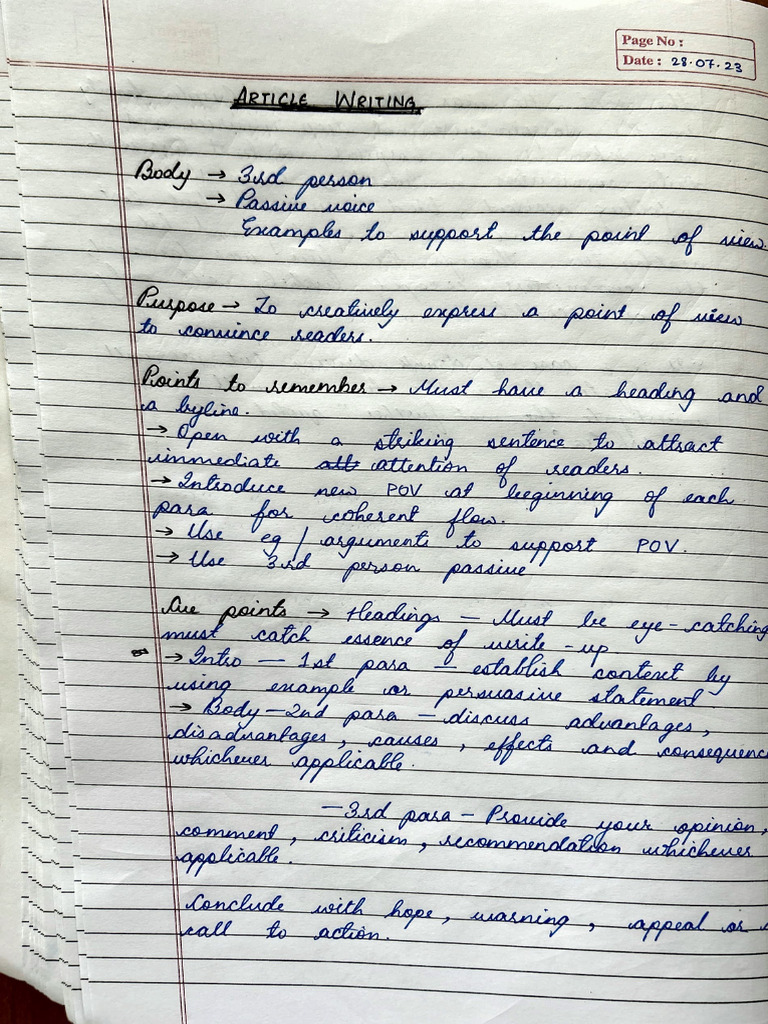 Page No :
Date : 28.07.23
ARTICLE WRITING
Body → 3rd person
→ Passive voice
Examples to support the point of view.
Purpose → To creatively express a point of view
to convince readers.
Points to remember → Must have a heading and
a byline.
→ Open with a striking sentence to attract
immediate att attention of readers.
→ Introduce new POV at beginning of each
para for coherent flow.
→ Use eg / arguments to support POV.
→ Use 3rd person passive
Cue points → Headings – Must be eye-catching
must catch essence of write-up
→ Intro – 1st para – establish context by
using example or persuasive statement
→ Body – 2nd para – discuss advantages,
disadvantages, causes, effects and consequenc
whichever applicable.
– 3rd para – Provide your opinion,
comment, criticism, recommendation whichever
applicable.
Conclude with hope, warning, appeal or
call to action.